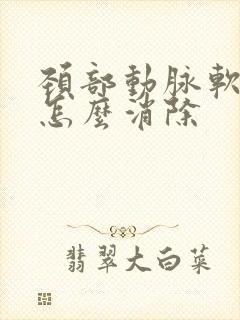 頸部動脉軟
怎麼消除
翡翠大白菜